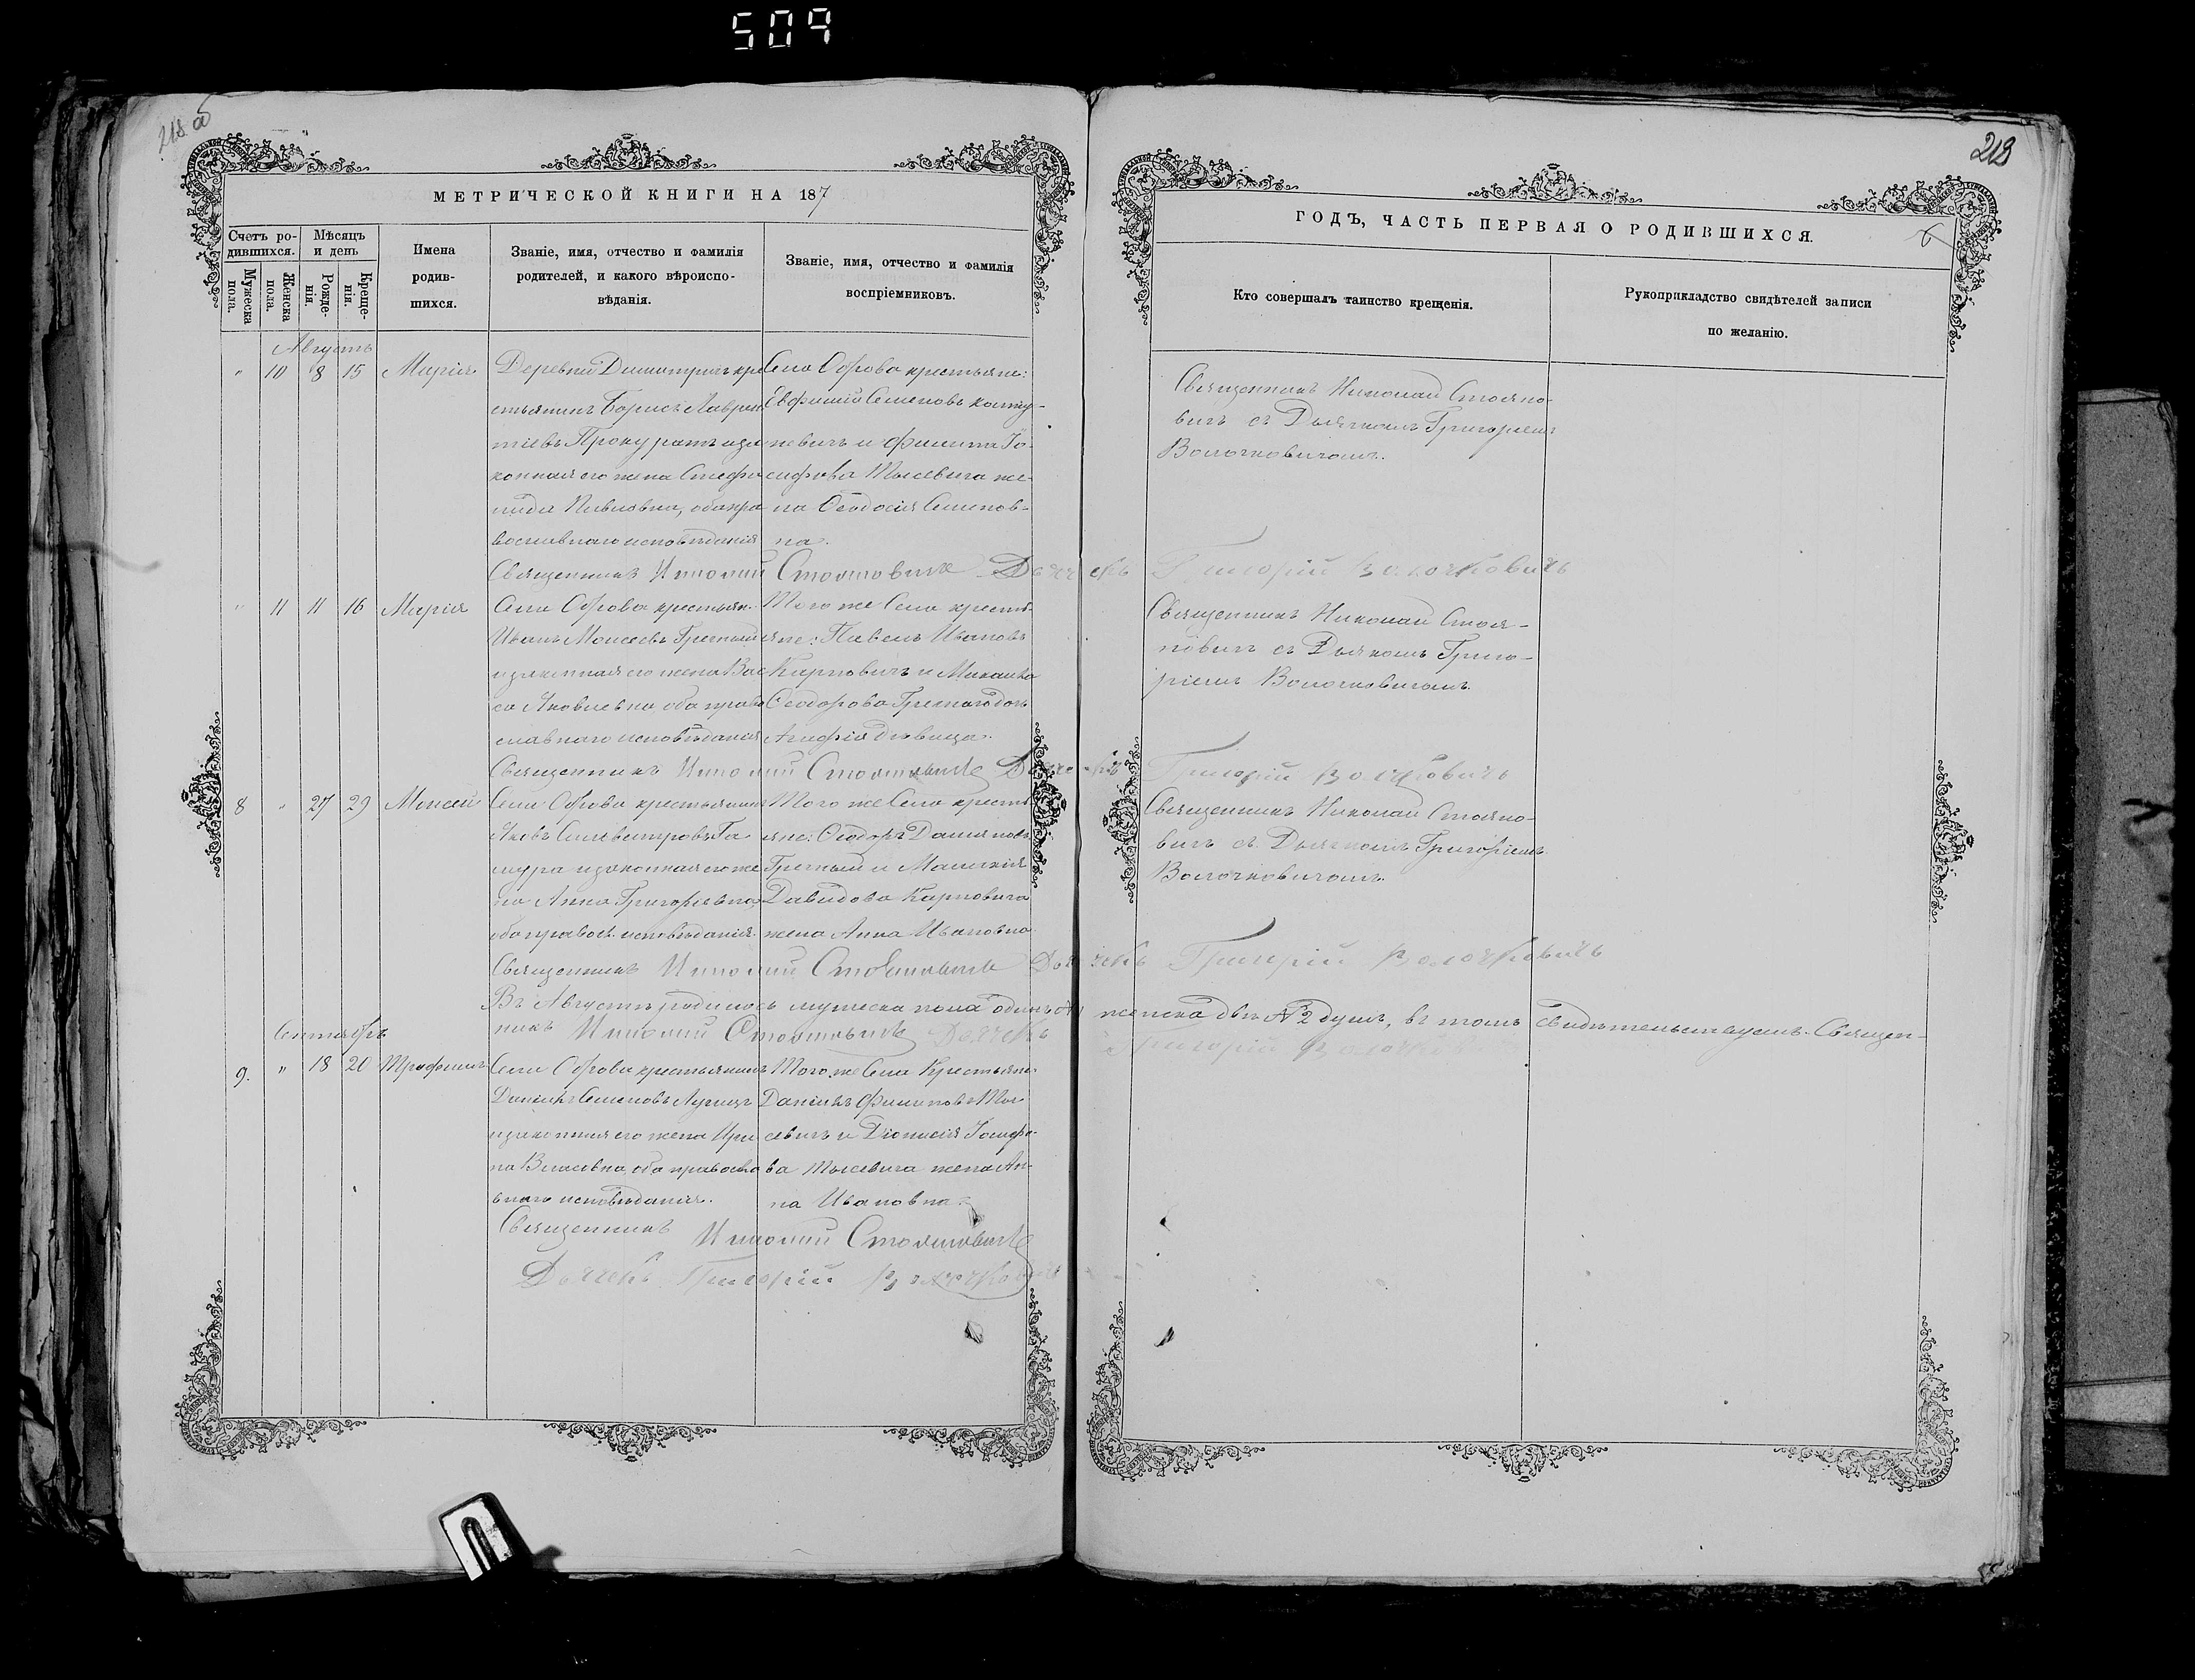 509
218 об
218
МЕТРИЧЕСКОЙ КНИГИ НА 187
ГОДЪ, ЧАСТЬ ПЕРВАЯ О РОДИВШИХСЯ.
6
Счетъ ро-
дившихся.
Мѣсяцъ
и день
Мужеска
пола.
Женска
пола.
Рожде-
нія.
Креще-
нія.
Имена
родив-
шихся.
Званіе, имя, отчество и фамилія
родителей, и какого вѣроиспо-
вѣданія.
Званіе, имя, отчество и фамилія
воспріемниковъ.
Кто совершалъ таинство крещенія.
Рукоприкладство свидѣтелей записи
по желанію.
Августъ
" 10 8 15 Марія
Деревни кре
стьянинъ Борисъ Лаврен
тіевъ Прокуратъ и за
конная его жена Степа
нида Павловна, оба пра
вославнаго исповѣданія
Села Оброва крестьяне:
Евфимій Семеновъ
невичъ и Филиппа Іо-
сифова Тысевича же-
на Ѳеодосія Семенов-
на.
Священникъ Николай Стояно-
вичъ съ Дьячкомъ Григоріемъ
Волочковичомъ.
Священникъ Николай Стояновичъ Дьячекъ Григорій Волочковичъ
" 11 11 16 Марія
Села Оброва крестьян.
Иванъ Моисеевъ Гречный
и законная его жена Вас
са Яковлевна оба право
славнаго исповѣданія
Того же Села кресть
яне: Павелъ Ивановъ
Карповичъ и Михаила
Ѳеодорова Гречнаго дочь
Агафія дѣвица.
Священникъ Николай Стоя-
новичъ съ Дьячкомъ Григо-
ріемъ Волочковичомъ.
Священникъ Николай Стояновичъ Дьячекъ Григорій Волочковичъ
8 " 27 29 Моисей
Села Оброва крестьянинъ
Яковъ Сильвестровъ Га
мура и законная его же
на Анна Григорьевна,
оба правосл. исповѣданія.
Того же Села кресть
яне: Ѳеодоръ Даміановъ
Гречный и
Давидова Карповича
жена Анна Ивановна.
Священникъ Николай Стояно-
вичъ съ Дьячкомъ Григоріемъ
Волочковичомъ.
Священникъ Николай Стояновичъ Дьячекъ Григорій Волочковичъ
Въ Августѣ родилось мужеска пола одинъ №1 женска двѣ №2 душъ, въ томъ свидѣтельствуемъ. Священ-
никъ Николай Стояновичъ Дьячекъ Григорій Волочковичъ
Сентябрь
9. " 18 20 Трофимъ
Села Оброва крестьянинъ
Даніилъ Семеновъ
и законная его жена Ири
на Власовна, оба правосла
внаго исповѣданія.
Того же Села Крестьяне
Даніилъ Филиповъ Ты
севичъ и Діонисія Іосифо-
ва Тысевича жена Ан-
на Ивановна.
Священникъ Николай Стояновичъ
Дьячекъ Григорій Волочковичъ